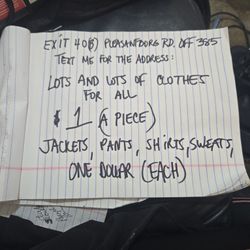 EXIT 40(B) PLEASANTBURG RD. OFF 385
TEXT ME FOR THE ADDRESS:
LOTS AND LOTS OF CLOTHES
FOR ALL
$1 (A PIECE)
JACKETS, PANTS, SHIRTS, SWEATS,
ONE DOLLAR (EACH)